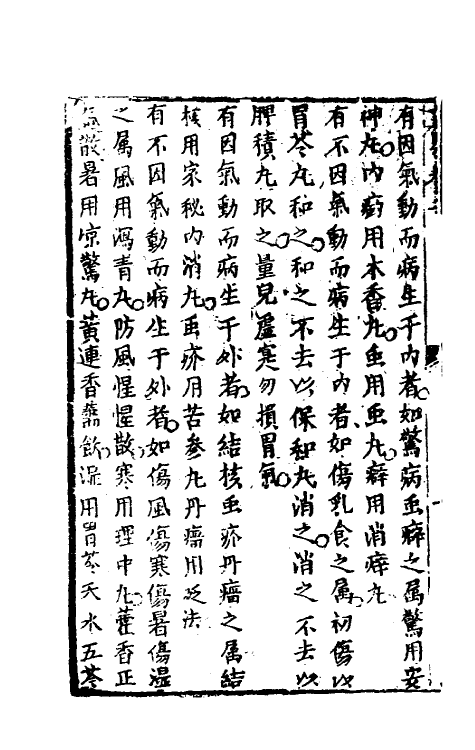 有因氣動而病生于內者如驚病虫癖之属驚用安
神丸內疳用木香丸虫用虫丸癖用消痞丸
有不因氣動而病生于內者如傷乳食之属初傷以
胃苓丸和之和之不去以保和丸消之消之不去以
脾積丸取之量兒虛寔勿損胃氣
有因氣動而病生于外者如結核虫疥丹瘤之属結
核用家秘內消丸虫疥用苦参丸丹瘤用砭法
有不因氣動而病生于外者如傷風傷寒傷暑傷湿
之属風用瀉青丸防風惺惺散寒用理中丸藿香正
氣散暑用凉驚丸黃連香薷飲湿用胃苓天水五苓